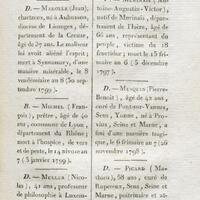 D. — MAROLLE (Jean),
chartreux, né à Anduzson,
diocèse de Limoges, dé-
partement de la Creuse,
âgé de 37 ans. Le malheur
lui avoit aliéné l'esprit;
mort à Synnamary, d'une
manière misérable, le 8
vendémiaire an 8 (30 sep-
tembre 1799).
B. — MICHEL (Fran-
çois), prêtre, âgé de 40
ans, commune de Lyon,
département du Rhône;
mort à l'hospice, de vers
et de peste, le 14 nivose an
7 (3 janvier 1799).
D. — MULLER (Nico-
las), 41 ans, professeur
de philosophie à Luxem-
toine-Augustin-Victor),
natif de Merinais, dépar-
tement de l'Isère, âgé de
66 ans, représentant du
peuple, victime du 18
fructidor; mort le 15 fri-
maire an 6 (5 décembre
1797).
D. — MUSQUIN (Pierre-
Benoît), âgé de 42 ans,
curé de Pont-sur-Vannes,
Sens, Yonne, né à Pro-
vins, Seine et Marne, a
fini d'une manière tragi-
que, le 6 frimaire an 7 (26
novembre 1798).
D. — PICARD (Ma-
thieu), 58 ans, curé
de Rupereux, Sens, Seine et
Marne, poitrinaire et ab-